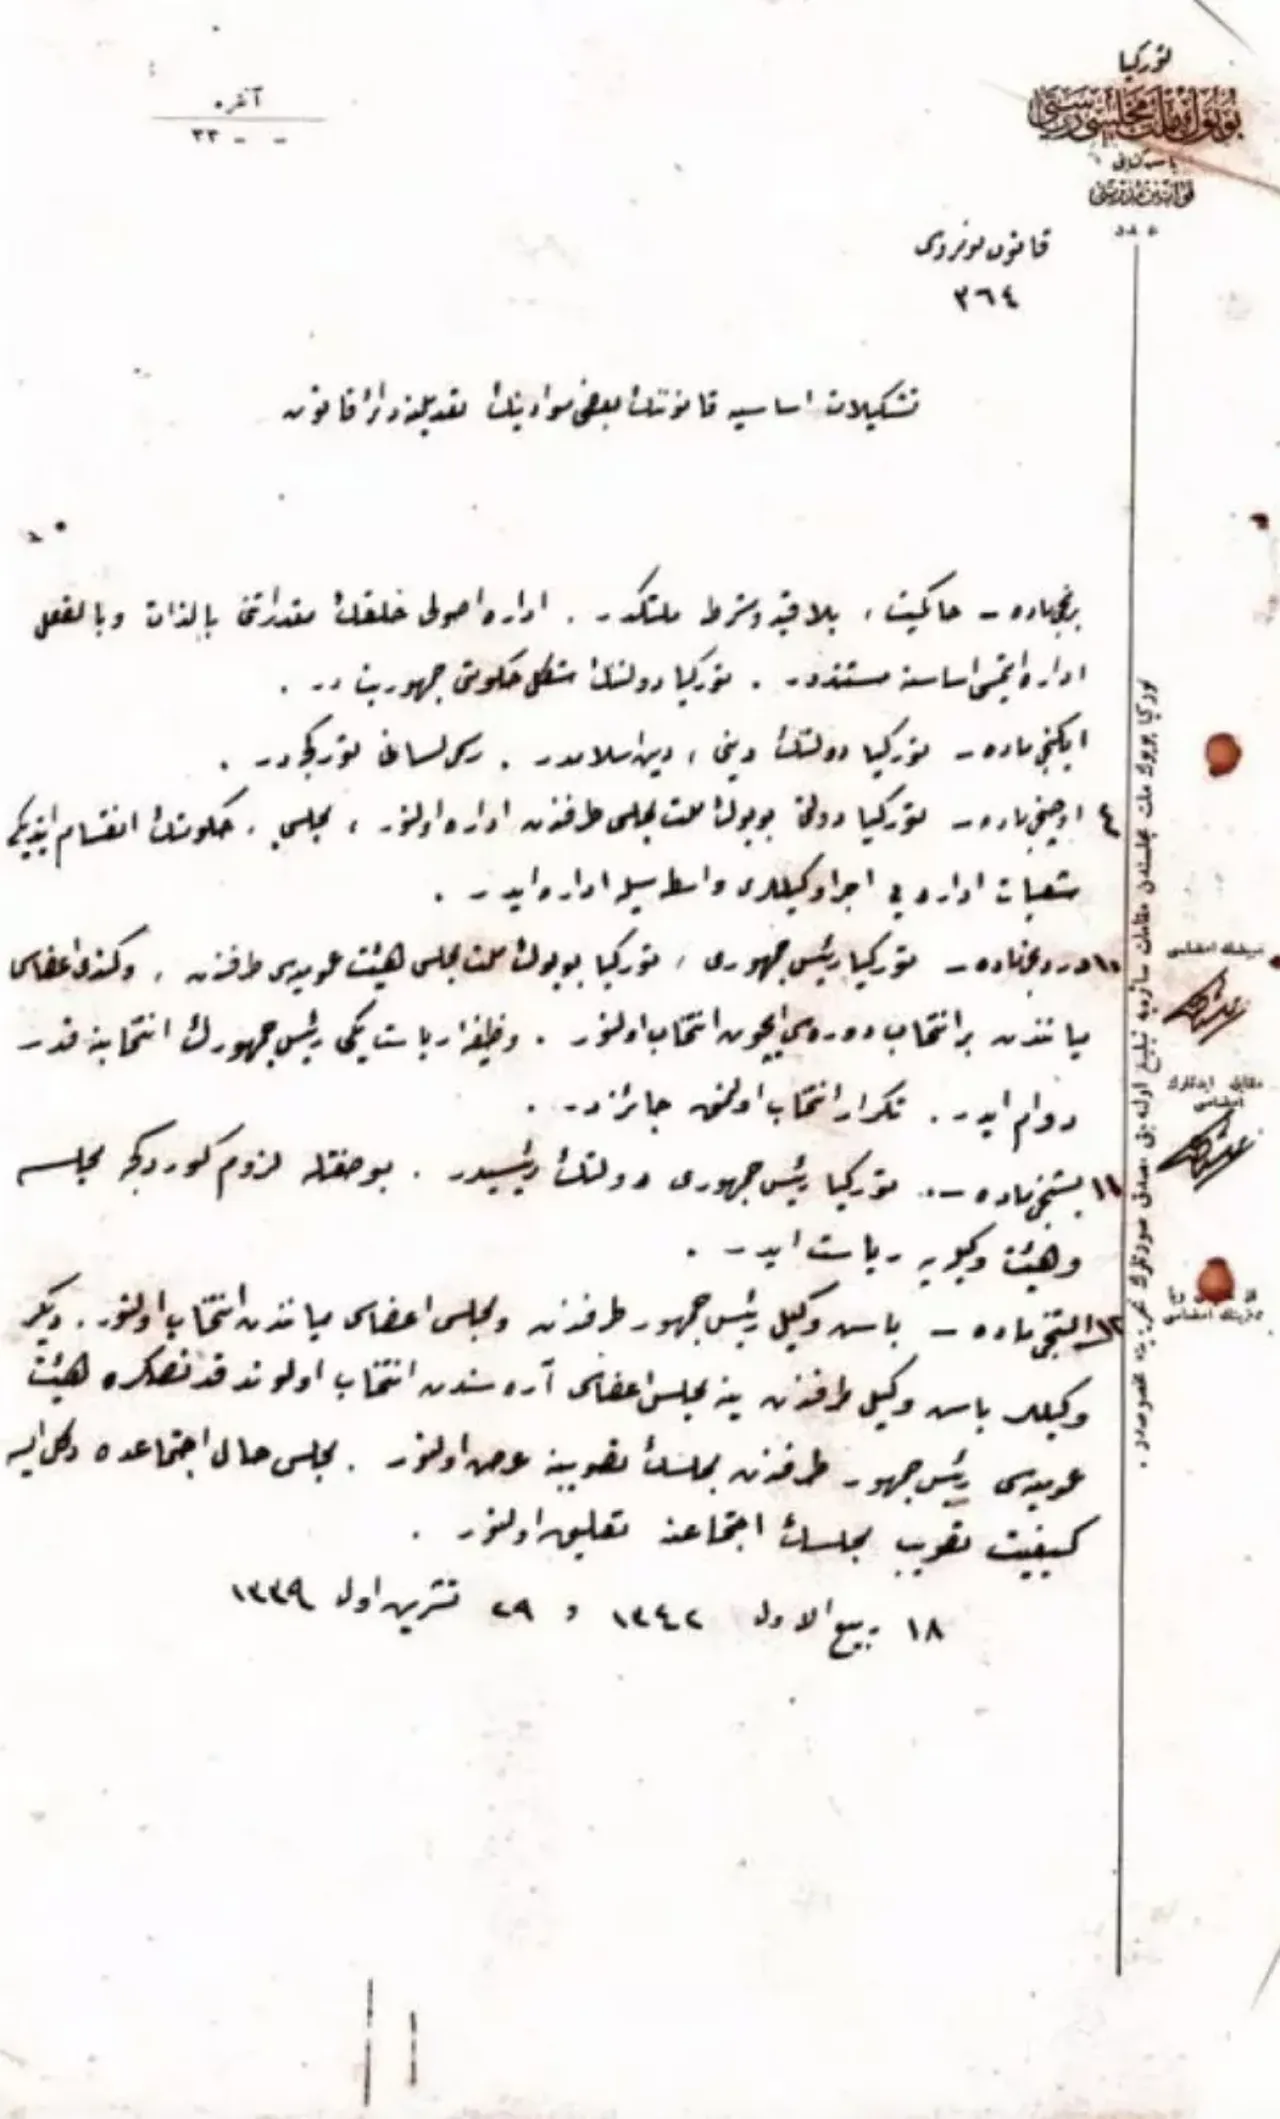 توركيا
بويوك ملت مجلسى رياستى
باش كتابتى
قوانين مديريتى
آنقره
٣٣ - -
قانون نومروسى
٣٦٤
تشكيلات اساسيه قانوننك بعض موادينك تعديلنه دائر قانون
برنجى ماده – حاكميت ، بلا قيد و شرط ملتكدر . اداره اصولى خلقك مقدراتنى بالذات و بالفعل
اداره ايتمسى اساسنه مستنددر . توركيا دولتنك شكل حكومتى جمهوريت در .
ايكنجى ماده – توركيا دولتنك دينى ، دين اسلامدر . رسمى لسانى توركجه در .
٤ اوچنجى ماده – توركيا دولتى بويوك ملت مجلسى طرفندن اداره اولنور ، مجلس ، حكومتك انقسام ايتديكى
شعبات اداره يى اجرا وكيللرى واسطه سيله اداره ايدر .
١٠ دردنجى ماده – توركيا رئيس جمهورى ، توركيا بويوك ملت مجلسى هيئت عموميه سى طرفندن ، وكندى اعضاسى
مياننده بر انتخاب دوره سى ايچون انتخاب اولنور . وظيفه رياست يكى رئيس جمهورك انتخابنه قدر
دوام ايدر . تكرار انتخاب اولنمق جائزدر .
١١ بشنجى ماده – توركيا رئيس جمهورى دولتك رئيسيدر . بو صفتله لزوم كوردكجه مجلسه
و هيئت وكيله يه رياست ايدر .
١٢ آلتنجى ماده – باش وكيل رئيس جمهور طرفندن و مجلس اعضاسى مياننده انتخاب اولنور . ديكر
وكيللر باش وكيل طرفندن ينه مجلس اعضاسى آره سندن انتخاب اولوندقدنصكره هيئت
عموميه سى رئيس جمهور طرفندن مجلسك تصويبنه عرض اولنور . مجلس حال اجتماعده دكل ايسه
كيفيت تصويب مجلسك اجتماعنه تعليق اولنور .
١٨ ربيع الاول ١٣٤٢ و ٢٩ تشرين اول ١٣٣٩
توركيا بويوك ملت مجلسندن مقامات سائره يه تبليغ اوله جق مصدق صورتلرك تحريرينه مخصوصدر .
مقابله ايدنلرك
امضاسى